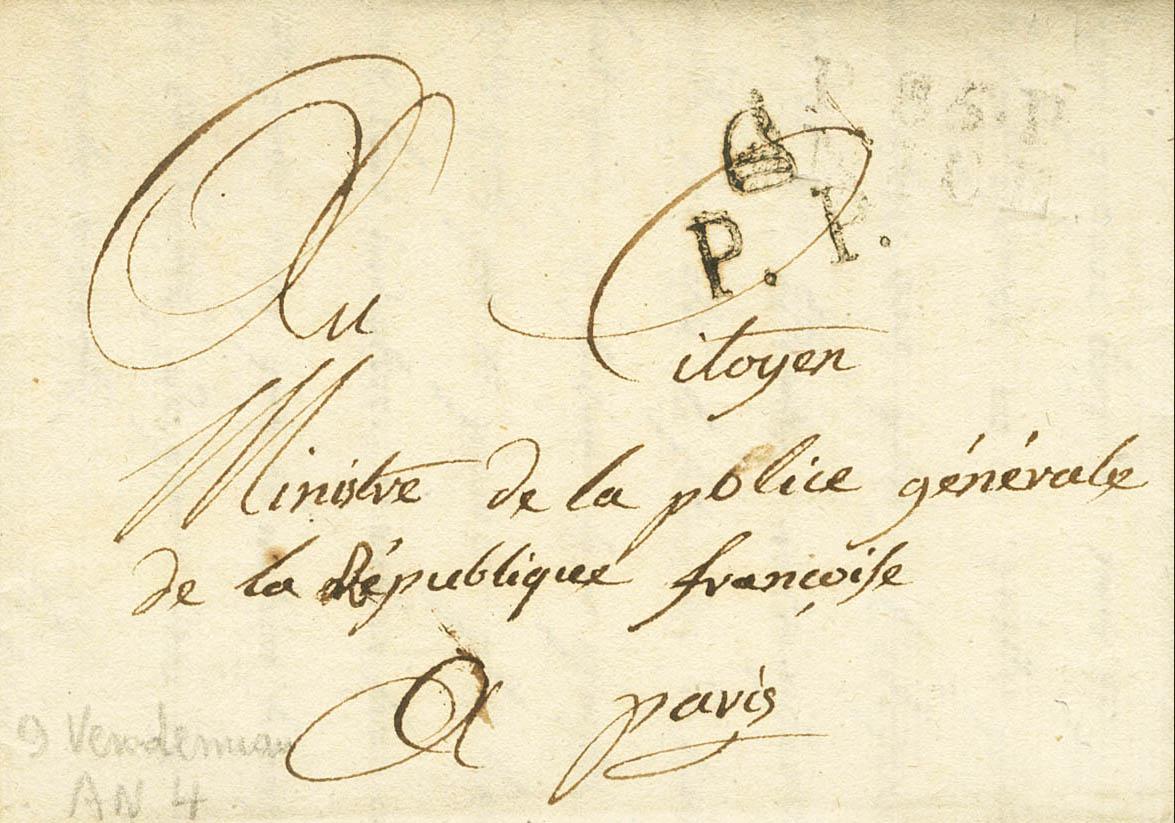 P.
P. P.
Au Citoyen
Ministre de la police générale
de la République françoise
A paris
9 Vendemiaire
AN 4